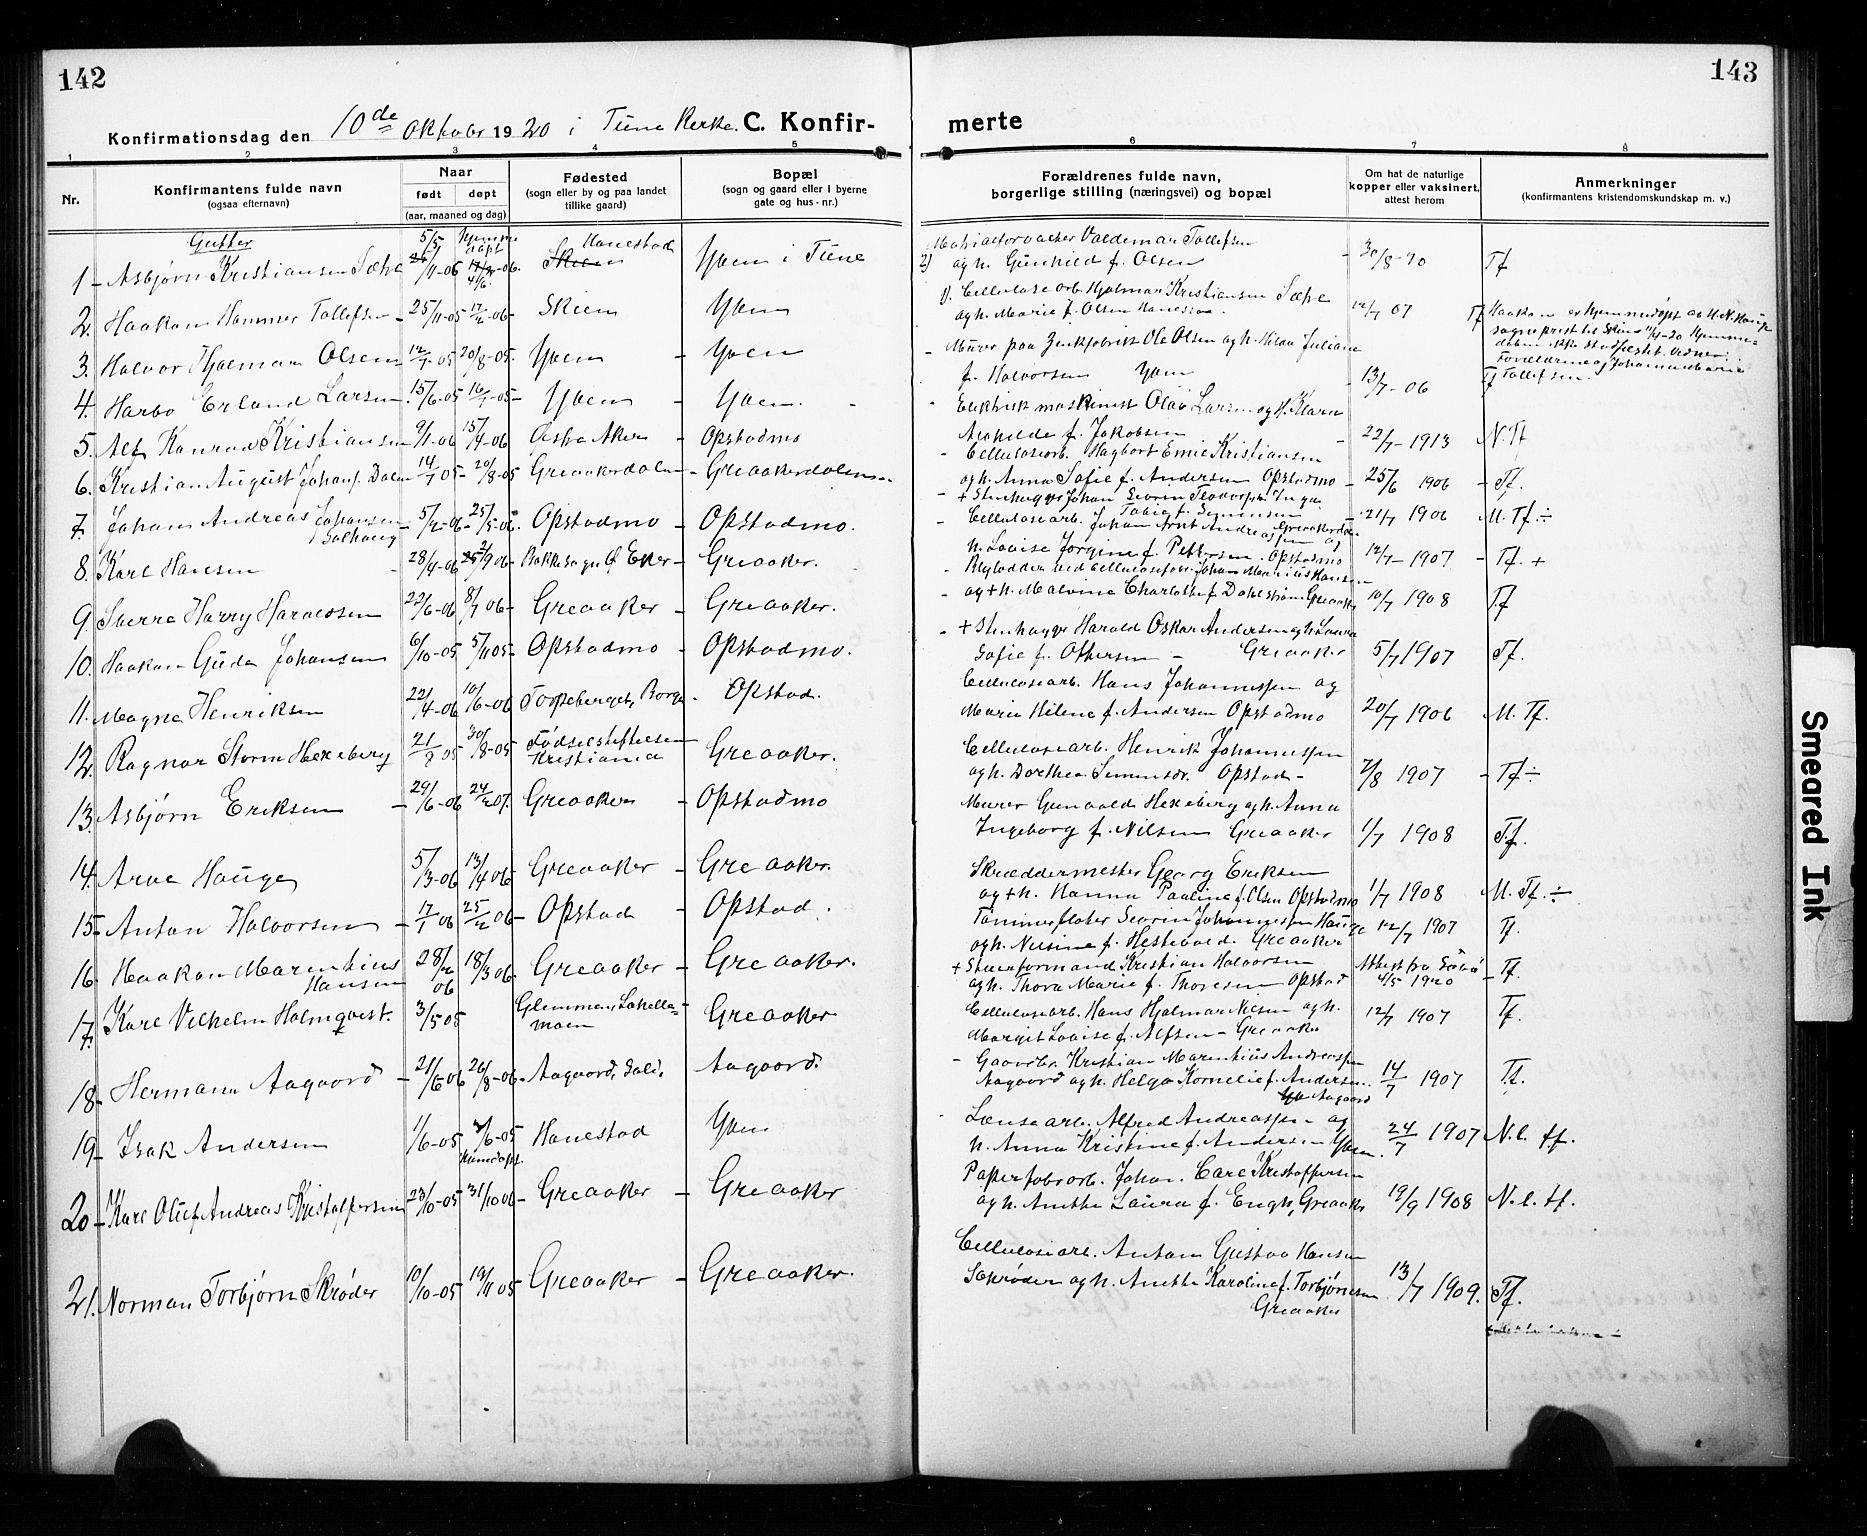 142
Konfirmationsdag den 10de Oktober 1920 i Tune Kirke. C. Konfir-
1 2 3 4 5
Nr.
Konfirmantens fulde navn
(ogsaa efternavn)
Naar
født døpt
(aar, maaned og dag)
Fødested
(sogn eller by og paa landet
tillike gaard)
Bopæl
(sogn og gaard eller i byerne
gate og hus-nr.)
Gutter
1 - Asbjørn Kristiansen Hanestad Yven i Tune
2. Haakon Hammer Tollefsen - 25/11-05 17/2-06- Skien Yven
3. Halvor Hjalmar Olsen 12/7-05 20/8-05- Yven - Yven
4. Harbo Erland Larsen 15/6-05 16/7-05- Yven - Yven.
5. Alf Konrad Kristiansen 9/1-06 15/4-06 Østre Aker - Opstadmo
6. Kristian August Johans. Dalen 14/7 05- 20/8-05 Greaakerdalen - Greaakerdalen
7. Johan Andreas Johansen
Solhaug - 5/2-06- 25/5-06 Opstadmo - Opstadmo.
8. Karl Hansen 28/4-06 Bakke sogn Ø. Eker - Greaaker.
9. Sverre Harry Haraldsen 22/6-06 8/7 06- Greaaker - Greaaker.
10. Haakon Gude Johansen 6/10-05 5/11 05- Opstadmo - Opstadmo.
11. Magne Henriksen 22/4-06 10/6-06 Torpeberget, Borge - Opstad.
12. Ragnar Storm Hexeberg 21/8 05 30/8-05 Fødselsstiftelsen
Kristiania Greaaker.
13. Asbjørn Eriksen - 29/6-06 24/2 07. Greaaker - Opstadmo
14. Arve Hauge 5/13-06 13/4 06 Greaaker - Greaaker.
15- Anton Halvorsen - 17/1 06 25/2 06- Opstad - Opstad.
16. Haakon Marentius
Hansen 28/2 06 18/3 06 Greaaker - Greaaker.
17. Karl Vilhelm Holmqvist. 3/5 05 Glemmen, Lahelle-
moen Greaaker
18- Hermann Aagaard - 21/6 06 26/8-06. Aagaard, Soli, Aagaard.
19- Isak Andersen 1/6-05 2/6-05 Hanestad Yven
Hjemdøpt.
20- Karl Oluf Andreas Kristoffersen 23/10-05 31/10 06- Greaaker - Greaaker
21. Norman Torbjørn Skrøder 10/10-05 19/11 05 Greaaker - Greaaker.
143
merte
6 7 8
Forældrenes fulde navn,
borgerlige stilling (næringsvei) og bopæl
Om hat de naturlige
kopper eller vaksinert,
attest herom
Anmerkninger
(konfirmantens kristendomskundskap m. v.)
Valdemar Tollefsen
2) og h. Gunhild f. Olsen - 30/8-10 Tf
1). Cellulosearb. Hjalmar Kristiansen
og h. Marie f. Olsen 12/7 07 Tf Haakon er hjemmedøpt av H. N. Hauge
sogneprest til Skien 11/4-20 Hjemme-
daaben ikke stadfestet. Vidner:
Forældrene og Johanne Marie
Tollefsen.
- Murer paa Zinkfabrik Ole Olsen og h. Hilda Juliane
f. Halvorsen Yven - 13/7-06 Tf
- Elektrisk maskinist Olav Larsen og h. Klara
f. Jakobsen - 22/7-1913 N. Tf
- Cellulosearb. Hagbart Emil Kristiansen
og h. Anna Sofie f. Andersen Opstadmo - 25/6 1906 - Tf.
- + Stenhugger Johan Severin Teodorsen
- 21/7 1906 M. Tf ÷
- Cellulosearb. Johan Arnt Andreassen og
h. Lovise Jørgine f. Pettersen. Opstadmo 12/7-1907 - Tf. +
Johan Marius Hansen
- og + h. Malvine Charlotte f. Dahlstrøm Greaaker 10/7 1908 Tf
- + Stenhugger Harald Oskar Andersen og h. Laura
Sofie f. Ottersen - Greaaker 5/7 1907 Tf.
Cellulosearb. Hans Johannessen og
Marie Helene f. Andersen Opstadmo 20/7 1906 M. Tf.
Cellulosearb. Henrik Johannessen
og h. Dorthea Simensdr. Opstad - 2/8 1907 - Tf ÷
Murer Gunvald Hexeberg og h. Anna
Ingeborg f. Nilsen Greaaker 1/7 1908 Tf.
Skræddermester Georg Eriksen
og + h. Hanna Pauline f. Olsen Opstadmo 1/7 1908 M. Tf. ÷
Tømmerfløter Severin Johannessen Hauge
og h. Nilsine f. Hestevold. Greaaker 12/7 1907 Tf.
+ Stuerformand Kristian Halvorsen
og h. Thora Marie f. Thoresen Opstad Attest fra
4/5 1920 - Tf.
Cellulosearb. Hans Hjalmar Nilsen og h.
Margit Lovise f. Alfsen - Greaaker 12/7 1907 Tf.
- Gaardbr. Kristian Marentius Andersen
Aagaard og h. Helga Kornelie f. Andersen. 14/7 1907 Tf.
Aagaard
Lænsearb. Alfred Andreassen og
h. Anna Kristine f. Andersen Yven. 24/7 1907 N. l. tf.
Papirfabarb. Johan Carl Kristoffersen
og h. Anethe Laura f. Engh, Greaaker 19/9 1908 N. l. tf.
Cellulosearb. Anton Gustav Hansen
Skrøder og h. Anethe Karoline f. Torbjørnsen 13/7 1909. Tf.
Greaaker
Smeared Ink